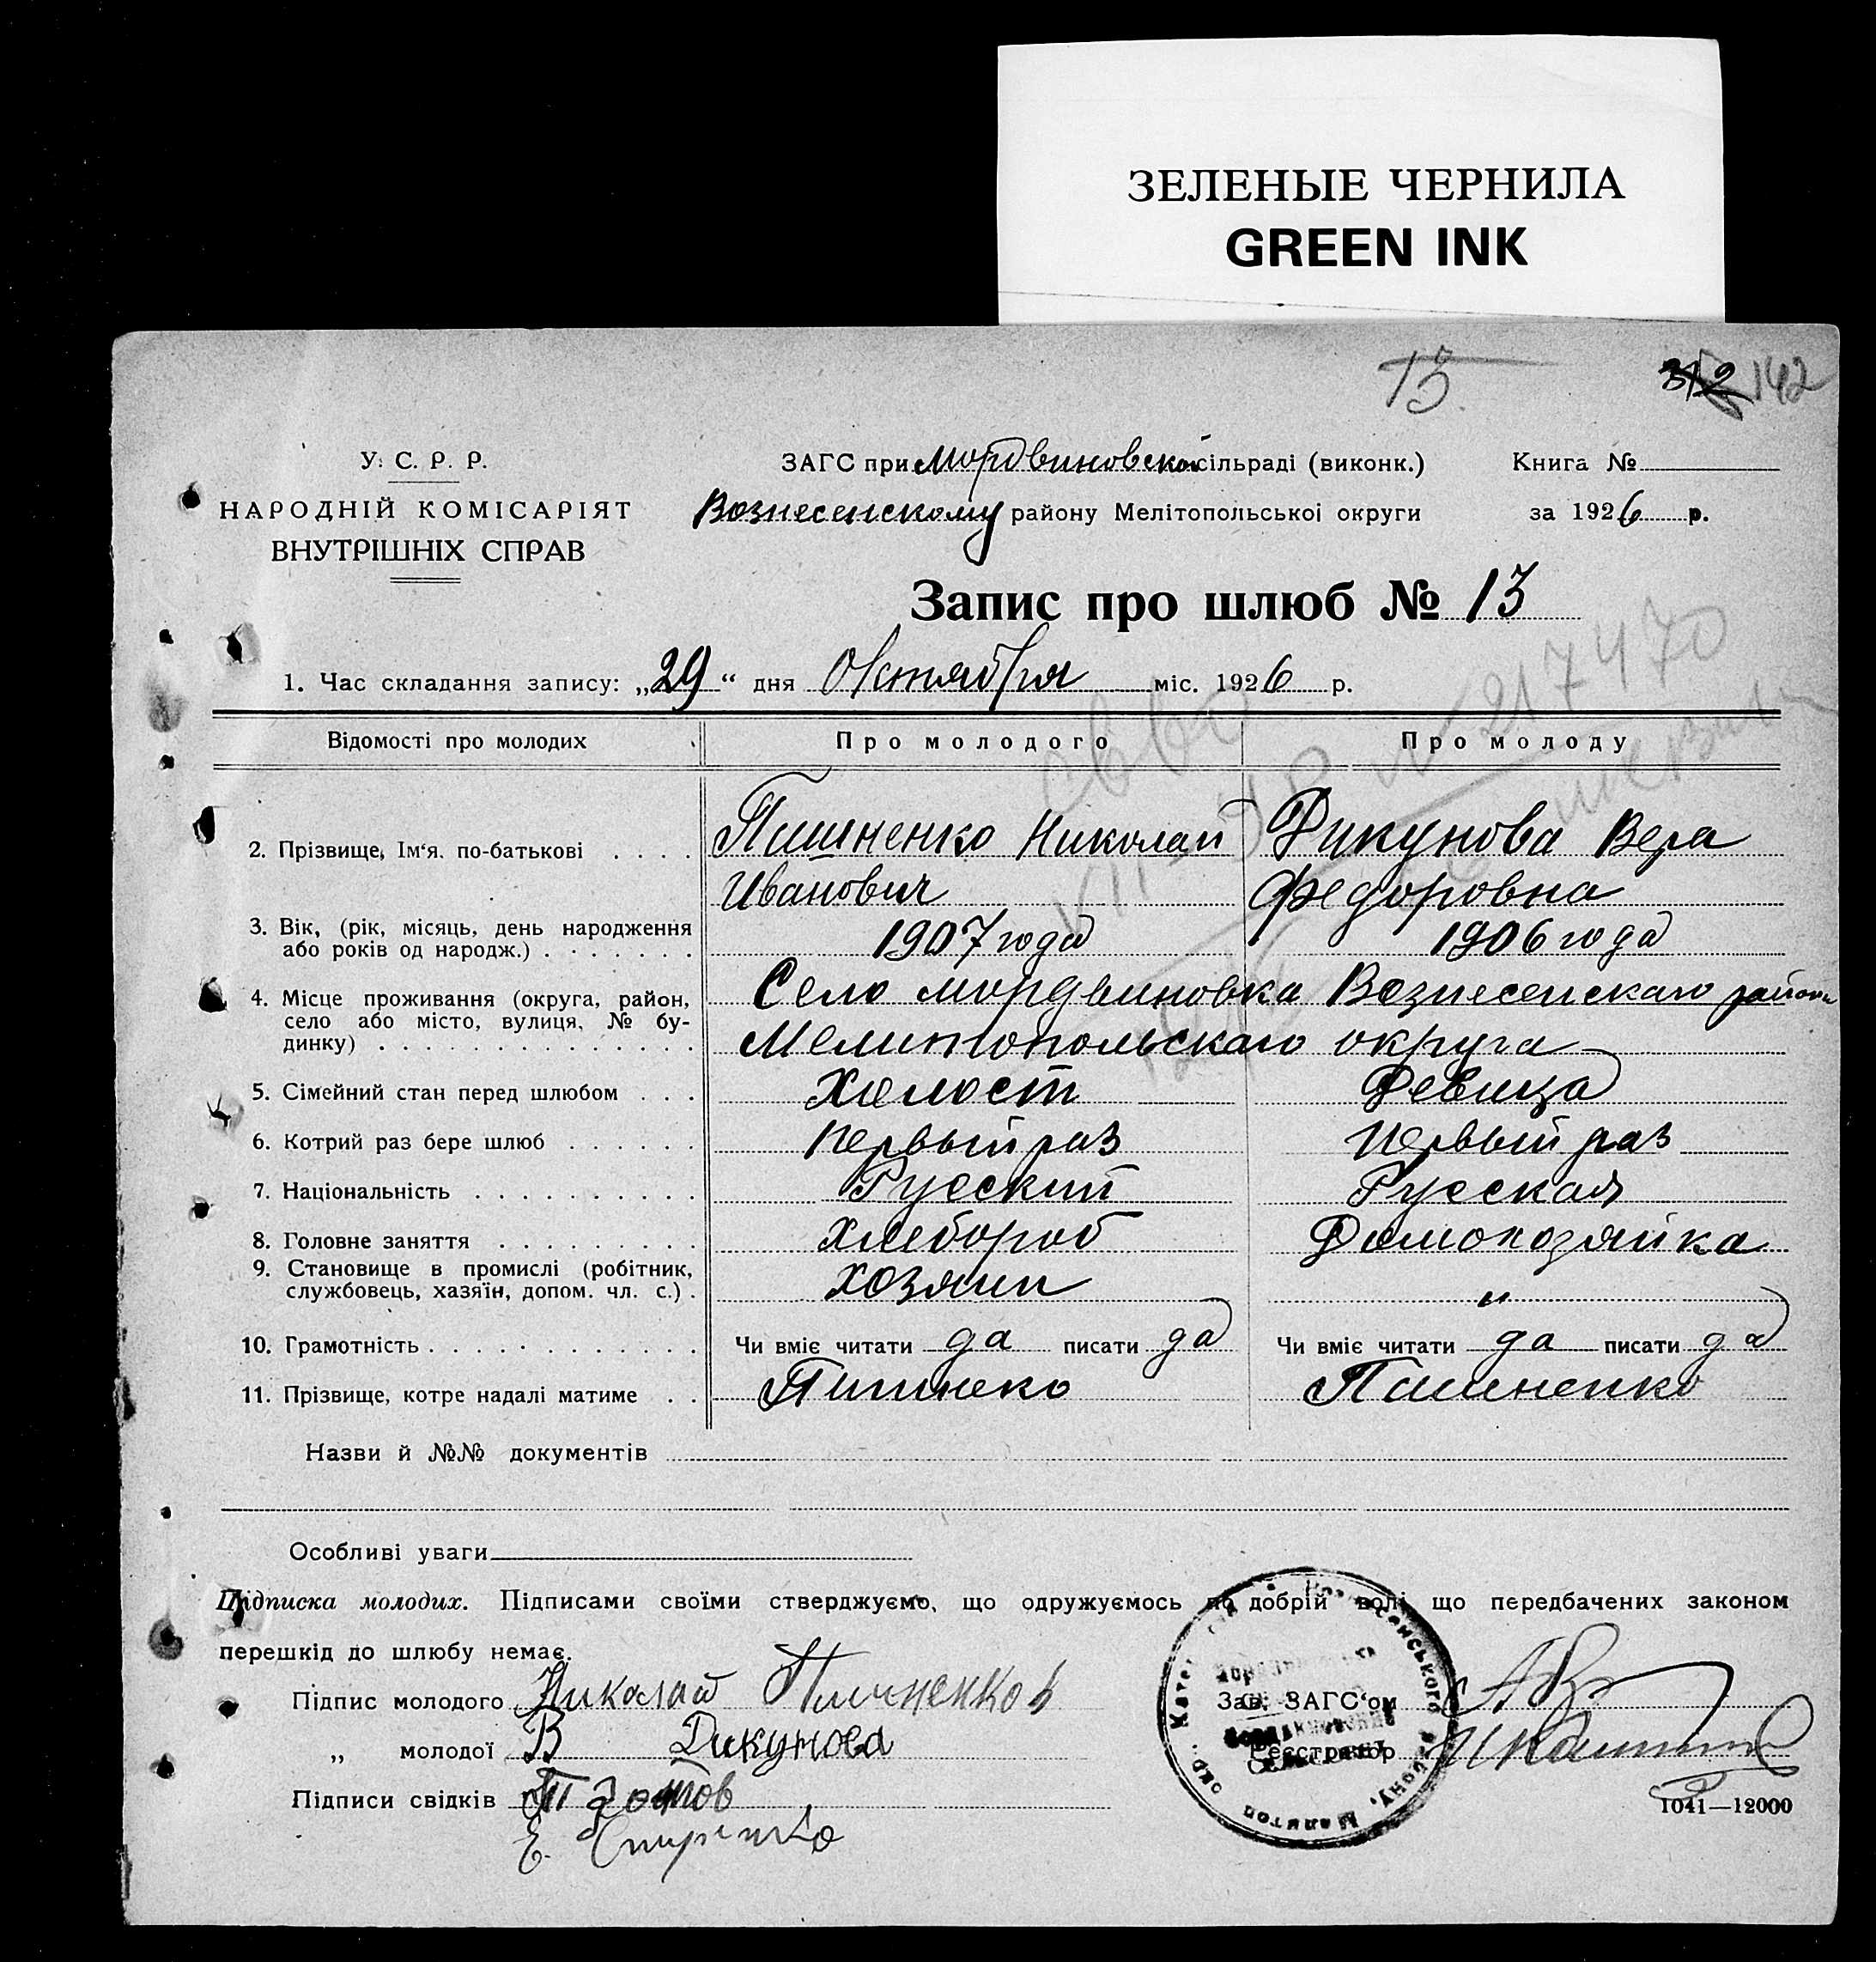 ЗЕЛЕНЫЕ ЧЕРНИЛА
GREEN INK
13
312 142
У. С. Р. Р.
НАРОДНІЙ КОМІСАРІЯТ
ВНУТРІШНІХ СПРАВ
ЗАГС при Мордвиновской сільраді (виконк.) Книга №
Вознесенскому району Мелітопольської округи за 1926 р.
Запис про шлюб № 13
217470
1. Час складання запису: „29“ дня Октября міс. 1926 р.
Відомості про молодих Про молодого Про молоду
2. Прізвище, Ім‘я. по-батькові Пишненко Николай Дикунова Вера
Иванович Федоровна
3. Вік, (рік, місяць, день народження
або років од народж.) 1907 года 1906 года
4. Місце проживання (округа, район, Село Мордвиновка Вознесенскаго района
село або місто, вулиця, № бу-
динку) Мелитопольскаго округа
5. Сімейний стан перед шлюбом Холост Девица
6. Котрий раз бере шлюб первый раз первый раз
7. Національність Русский Русская
8. Головне заняття Хлебороб Домохозяйка
9. Становище в промислі (робітник,
службовець, хазяїн, допом. чл. с.) хозяин "
10. Грамотність Чи вміє читати да писати да Чи вміє читати да писати да
11. Прізвище, котре надалі матиме Пишнеко Пишненко
Назви й №№ документів
Особливі уваги
Підписка молодих. Підписами своїми стверджуємо, що одружуємось по добрій волі що передбачених законом
перешкід до шлюбу немає.
Підпис молодого Николай Пишненков
Зав. ЗАГС‘ом
„ молодої В Дикунова
Реєстратор
Підписи свідків
1041—12000